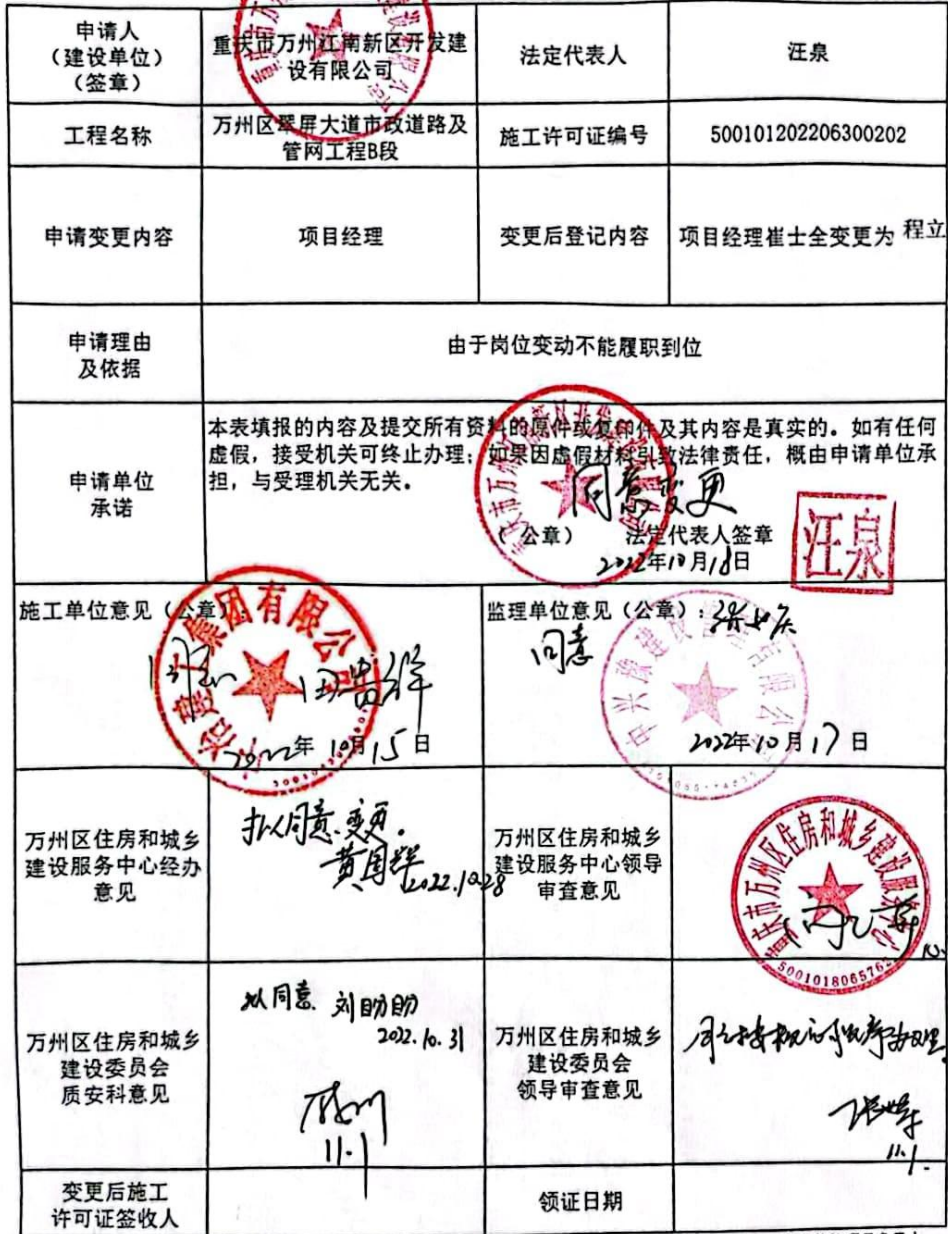 申请人
（建设单位）
（签章）
重庆市万州江南新区开发建
设有限公司
法定代表人
汪泉
工程名称
万州区翠屏大道市政道路及
管网工程B段
施工许可证编号
500101202206300202
申请变更内容
项目经理
变更后登记内容
项目经理崔士全变更为 程立
申请理由
及依据
由于岗位变动不能履职到位
申请单位
承诺
本表填报的内容及提交所有资料的原件或复印件及其内容是真实的。如有任何
虚假，接受机关可终止办理；如果因虚假材料引致法律责任，概由申请单位承
担，与受理机关无关。
同意变更
（公章） 法定代表人签章
2022年10月18日
汪泉
施工单位意见（公章）：
集团有限公司
2022年10月15日
监理单位意见（公章）：
同意
2022年10月17日
万州区住房和城乡
建设服务中心经办
意见
拟同意变更。
黄国辉
2022.10.28
万州区住房和城乡
建设服务中心领导
审查意见
重庆市万州区住房和城乡建设服务中心
5001018065762
万州区住房和城乡
建设委员会
质安科意见
拟同意 刘盼盼
2022.10.31
11.1
万州区住房和城乡
建设委员会
领导审查意见
11.1.
变更后施工
许可证签收人
领证日期